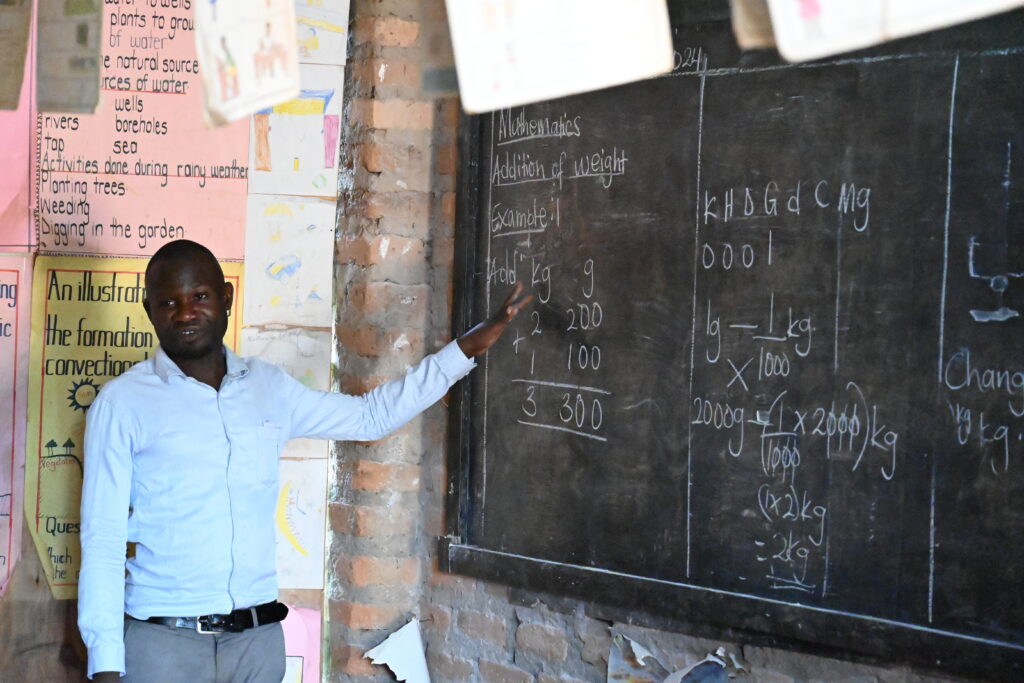 water to wells
plants to grow
of water
natural source
sources of water
wells
rivers boreholes
tap sea
Activities done during rainy weather
Planting trees
Weeding
Digging in the garden
An illustrat
the formation
convection
Ques
Which
the
Mathematics
Addition of weight
Example:1
Add kg g
2 200
+
1 100
3 300
K H D G d C Mg
0 0 0 1
1g — 1 kg
1000
X
2000g = (1 x 2000) kg
1000
(1x2)kg
= 2kg
Chang
kg
kg.